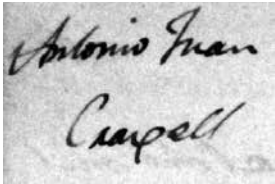 Antonio Juan
Crexell